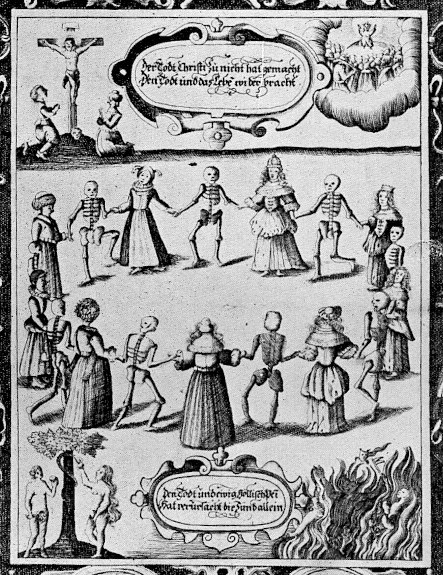 Der Todt Christi Zu nicht hat gemacht
Den Todt und das Lebē wider bracht
Den Todt und ewig Höllisch Pei
Hat verursacht die Sund allein